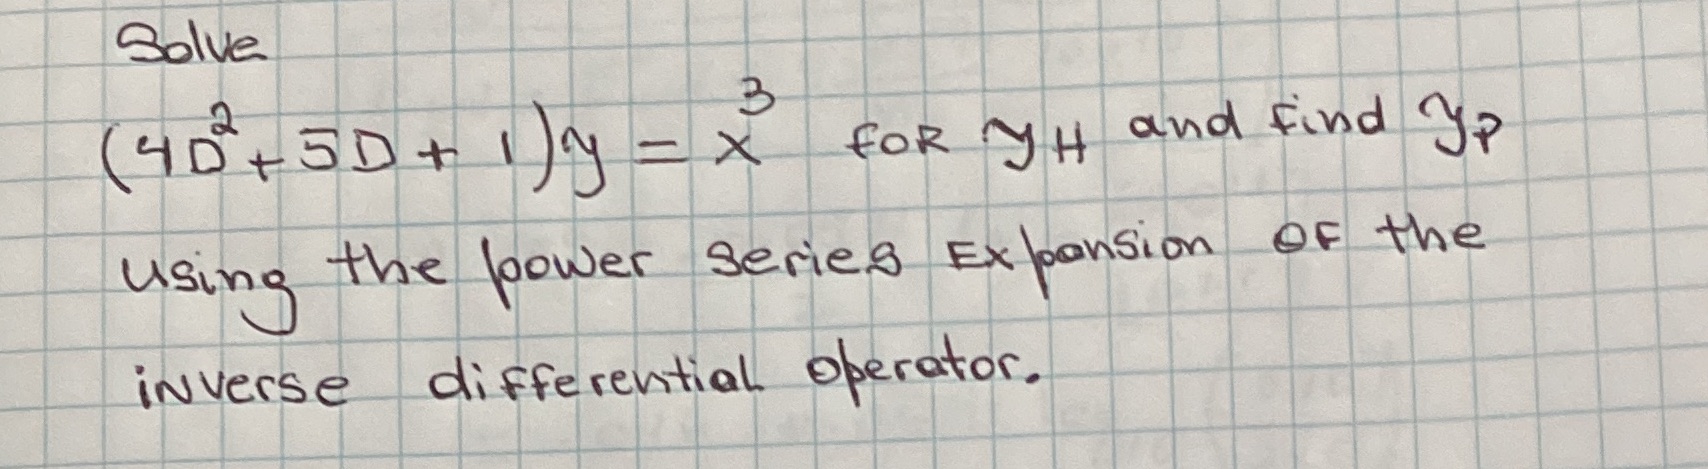 Solve
(4D²+5D+1)y = x³ for yH and find yp
using the power series Expansion OF the
inverse differential operator.